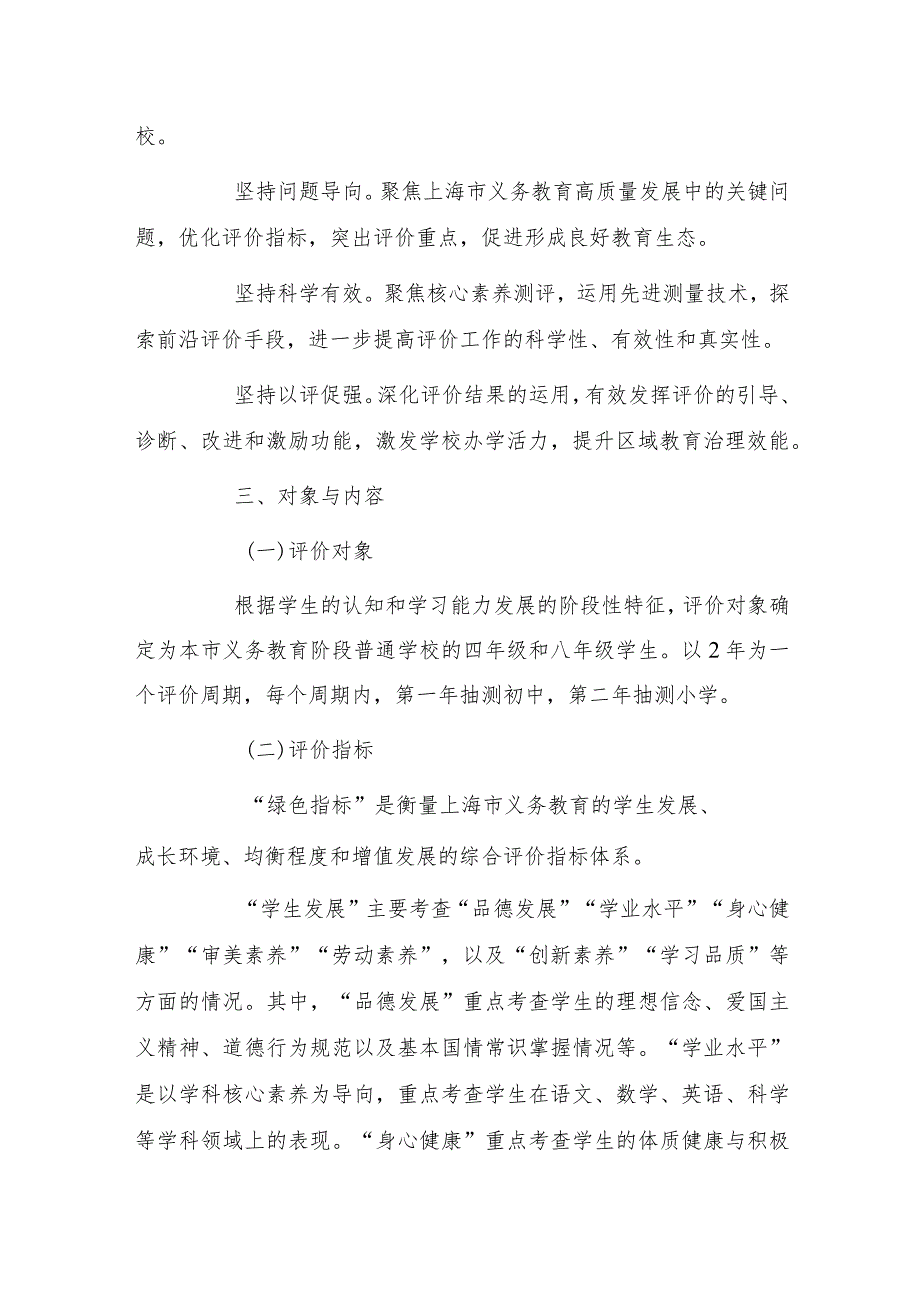 校。
坚持问题导向。聚焦上海市义务教育高质量发展中的关键问
题，优化评价指标，突出评价重点，促进形成良好教育生态。
坚持科学有效。聚焦核心素养测评，运用先进测量技术，探
索前沿评价手段，进一步提高评价工作的科学性、有效性和真实性。
坚持以评促强。深化评价结果的运用，有效发挥评价的引导、
诊断、改进和激励功能，激发学校办学活力，提升区域教育治理效能。
三、对象与内容
(一)评价对象
根据学生的认知和学习能力发展的阶段性特征，评价对象确
定为本市义务教育阶段普通学校的四年级和八年级学生。以2年为一
个评价周期，每个周期内，第一年抽测初中，第二年抽测小学。
(二)评价指标
“绿色指标”是衡量上海市义务教育的学生发展、
成长环境、均衡程度和增值发展的综合评价指标体系。
“学生发展”主要考查“品德发展”“学业水平”“身心健
康”“审美素养”“劳动素养”，以及“创新素养”“学习品质”等
方面的情况。其中，“品德发展”重点考查学生的理想信念、爱国主
义精神、道德行为规范以及基本国情常识掌握情况等。“学业水平”
是以学科核心素养为导向，重点考查学生在语文、数学、英语、科学
等学科领域上的表现。“身心健康”重点考查学生的体质健康与积极